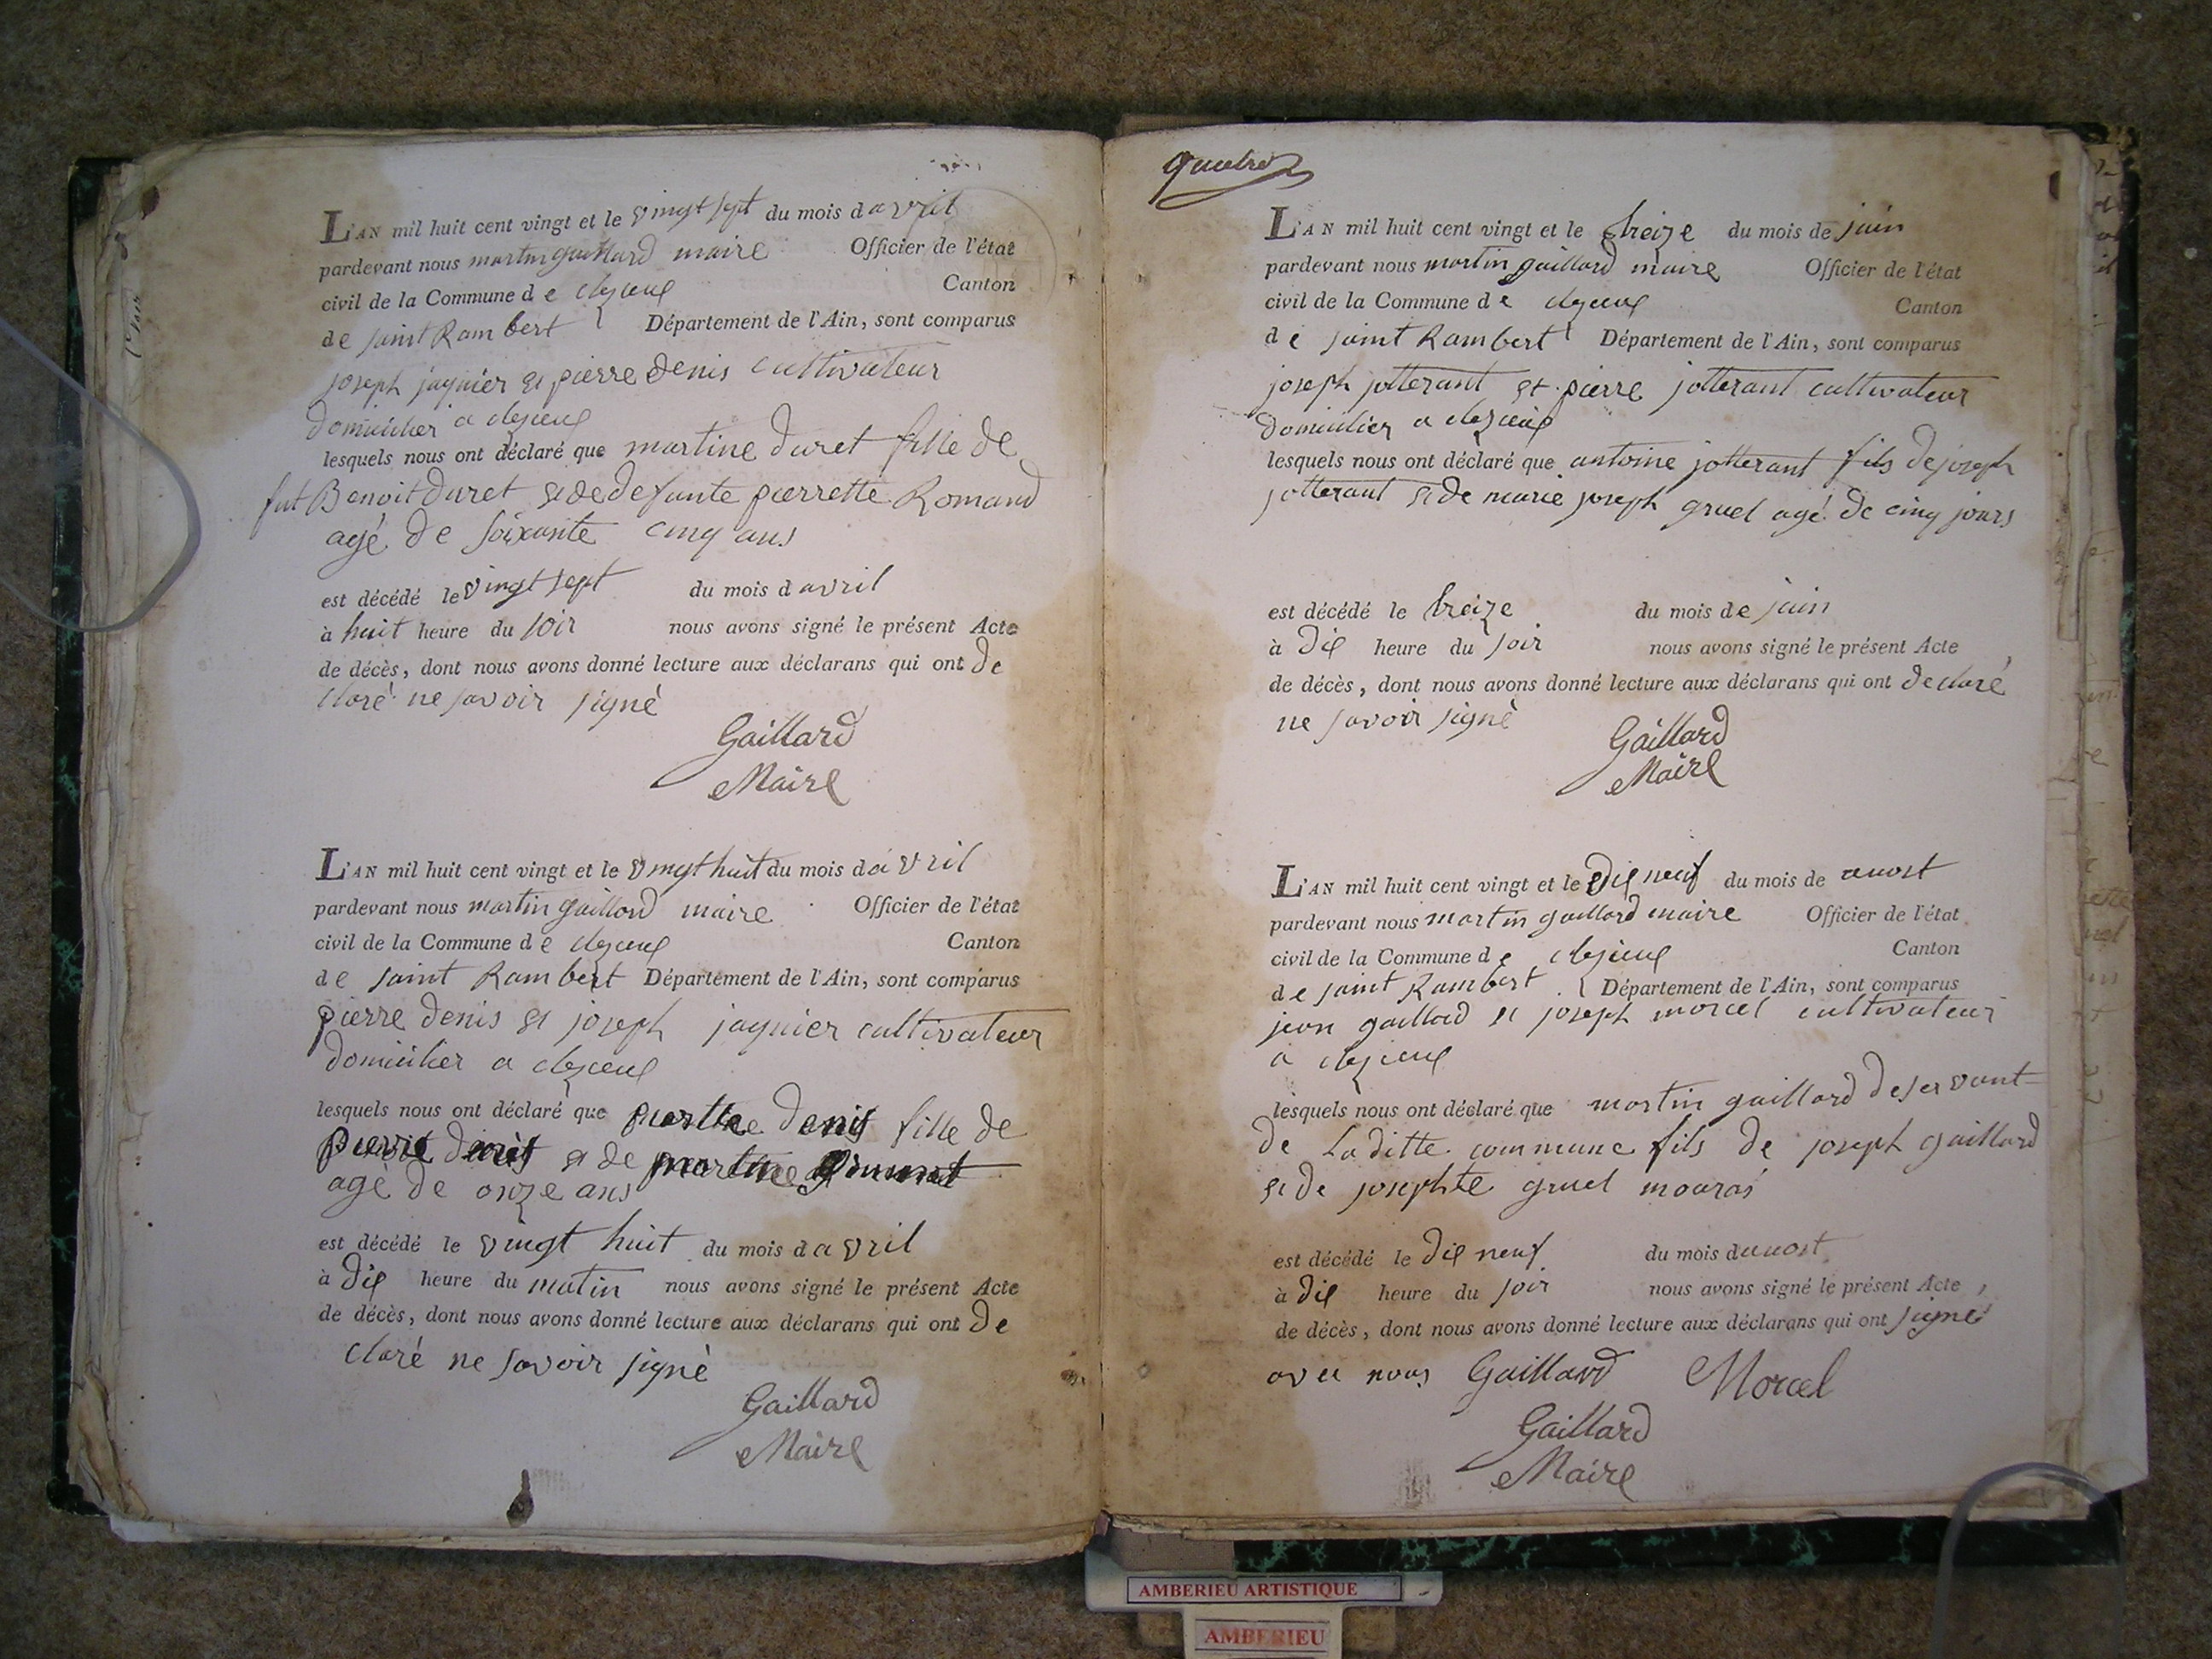 L'AN mil huit cent vingt et le vingt sept du mois d avril
pardevant nous martin gaillard maire Officier de l'état
civil de la Commune d e clezieux Canton
de saint Rambert Département de l'Ain, sont comparus
joseph jagnier et pierre denis cultivateur
domicilier a clezieux
lesquels nous ont déclaré que martine duret fille de
fut Benoit duret et de defunte pierrette Romand
agé de soixante cinq ans
est décédé le vingt sept du mois d avril
à huit heure du soir nous avons signé le présent Acte
de décès, dont nous avons donné lecture aux déclarans qui ont de
claré ne savoir signé
Gaillard
Maire
L'AN mil huit cent vingt et le vingt huit du mois d avril
pardevant nous martin gaillard maire Officier de l'état
civil de la Commune d e clezieux Canton
de saint Rambert Département de l'Ain, sont comparus
pierre denis et joseph jagnier cultivateur
domicilier a clezieux
lesquels nous ont déclaré que denis fille de
pierre denis et de
agé de onze ans
est décédé le vingt huit du mois d avril
à dix heure du matin nous avons signé le présent Acte
de décès, dont nous avons donné lecture aux déclarans qui ont de
claré ne savoir signé
Gaillard
Maire
quatre
L'AN mil huit cent vingt et le treize du mois de juin
pardevant nous martin gaillard maire Officier de l'état
civil de la Commune d e clezieux Canton
de saint Rambert Département de l'Ain, sont comparus
joseph jotterant et pierre jotterant cultivateur
domicilier a clezieux
lesquels nous ont déclaré que antoine jotterant fils de joseph
jotterant et de marie joseph gruel agé de cinq jours
est décédé le treize du mois de juin
à dix heure du soir nous avons signé le présent Acte
de décès, dont nous avons donné lecture aux déclarans qui ont declaré
ne savoir signé
Gaillard
Maire
L'AN mil huit cent vingt et le dix neuf du mois de auost
pardevant nous martin gaillard maire Officier de l'état
civil de la Commune d e clezieux Canton
de saint Rambert Département de l'Ain, sont comparus
jean gaillard et joseph morcel cultivateur
a clezieux
lesquels nous ont déclaré que martin gaillard deservant
de Laditte commune fils de joseph gaillard
et de josephte gruel mouras
est décédé le dix neuf du mois d auost
à dix heure du soir nous avons signé le présent Acte
de décès, dont nous avons donné lecture aux déclarans qui ont signé
avec nous Gaillard Morcel
Gaillard
Maire
AMBERIEU ARTISTIQUE
AMBERIEU